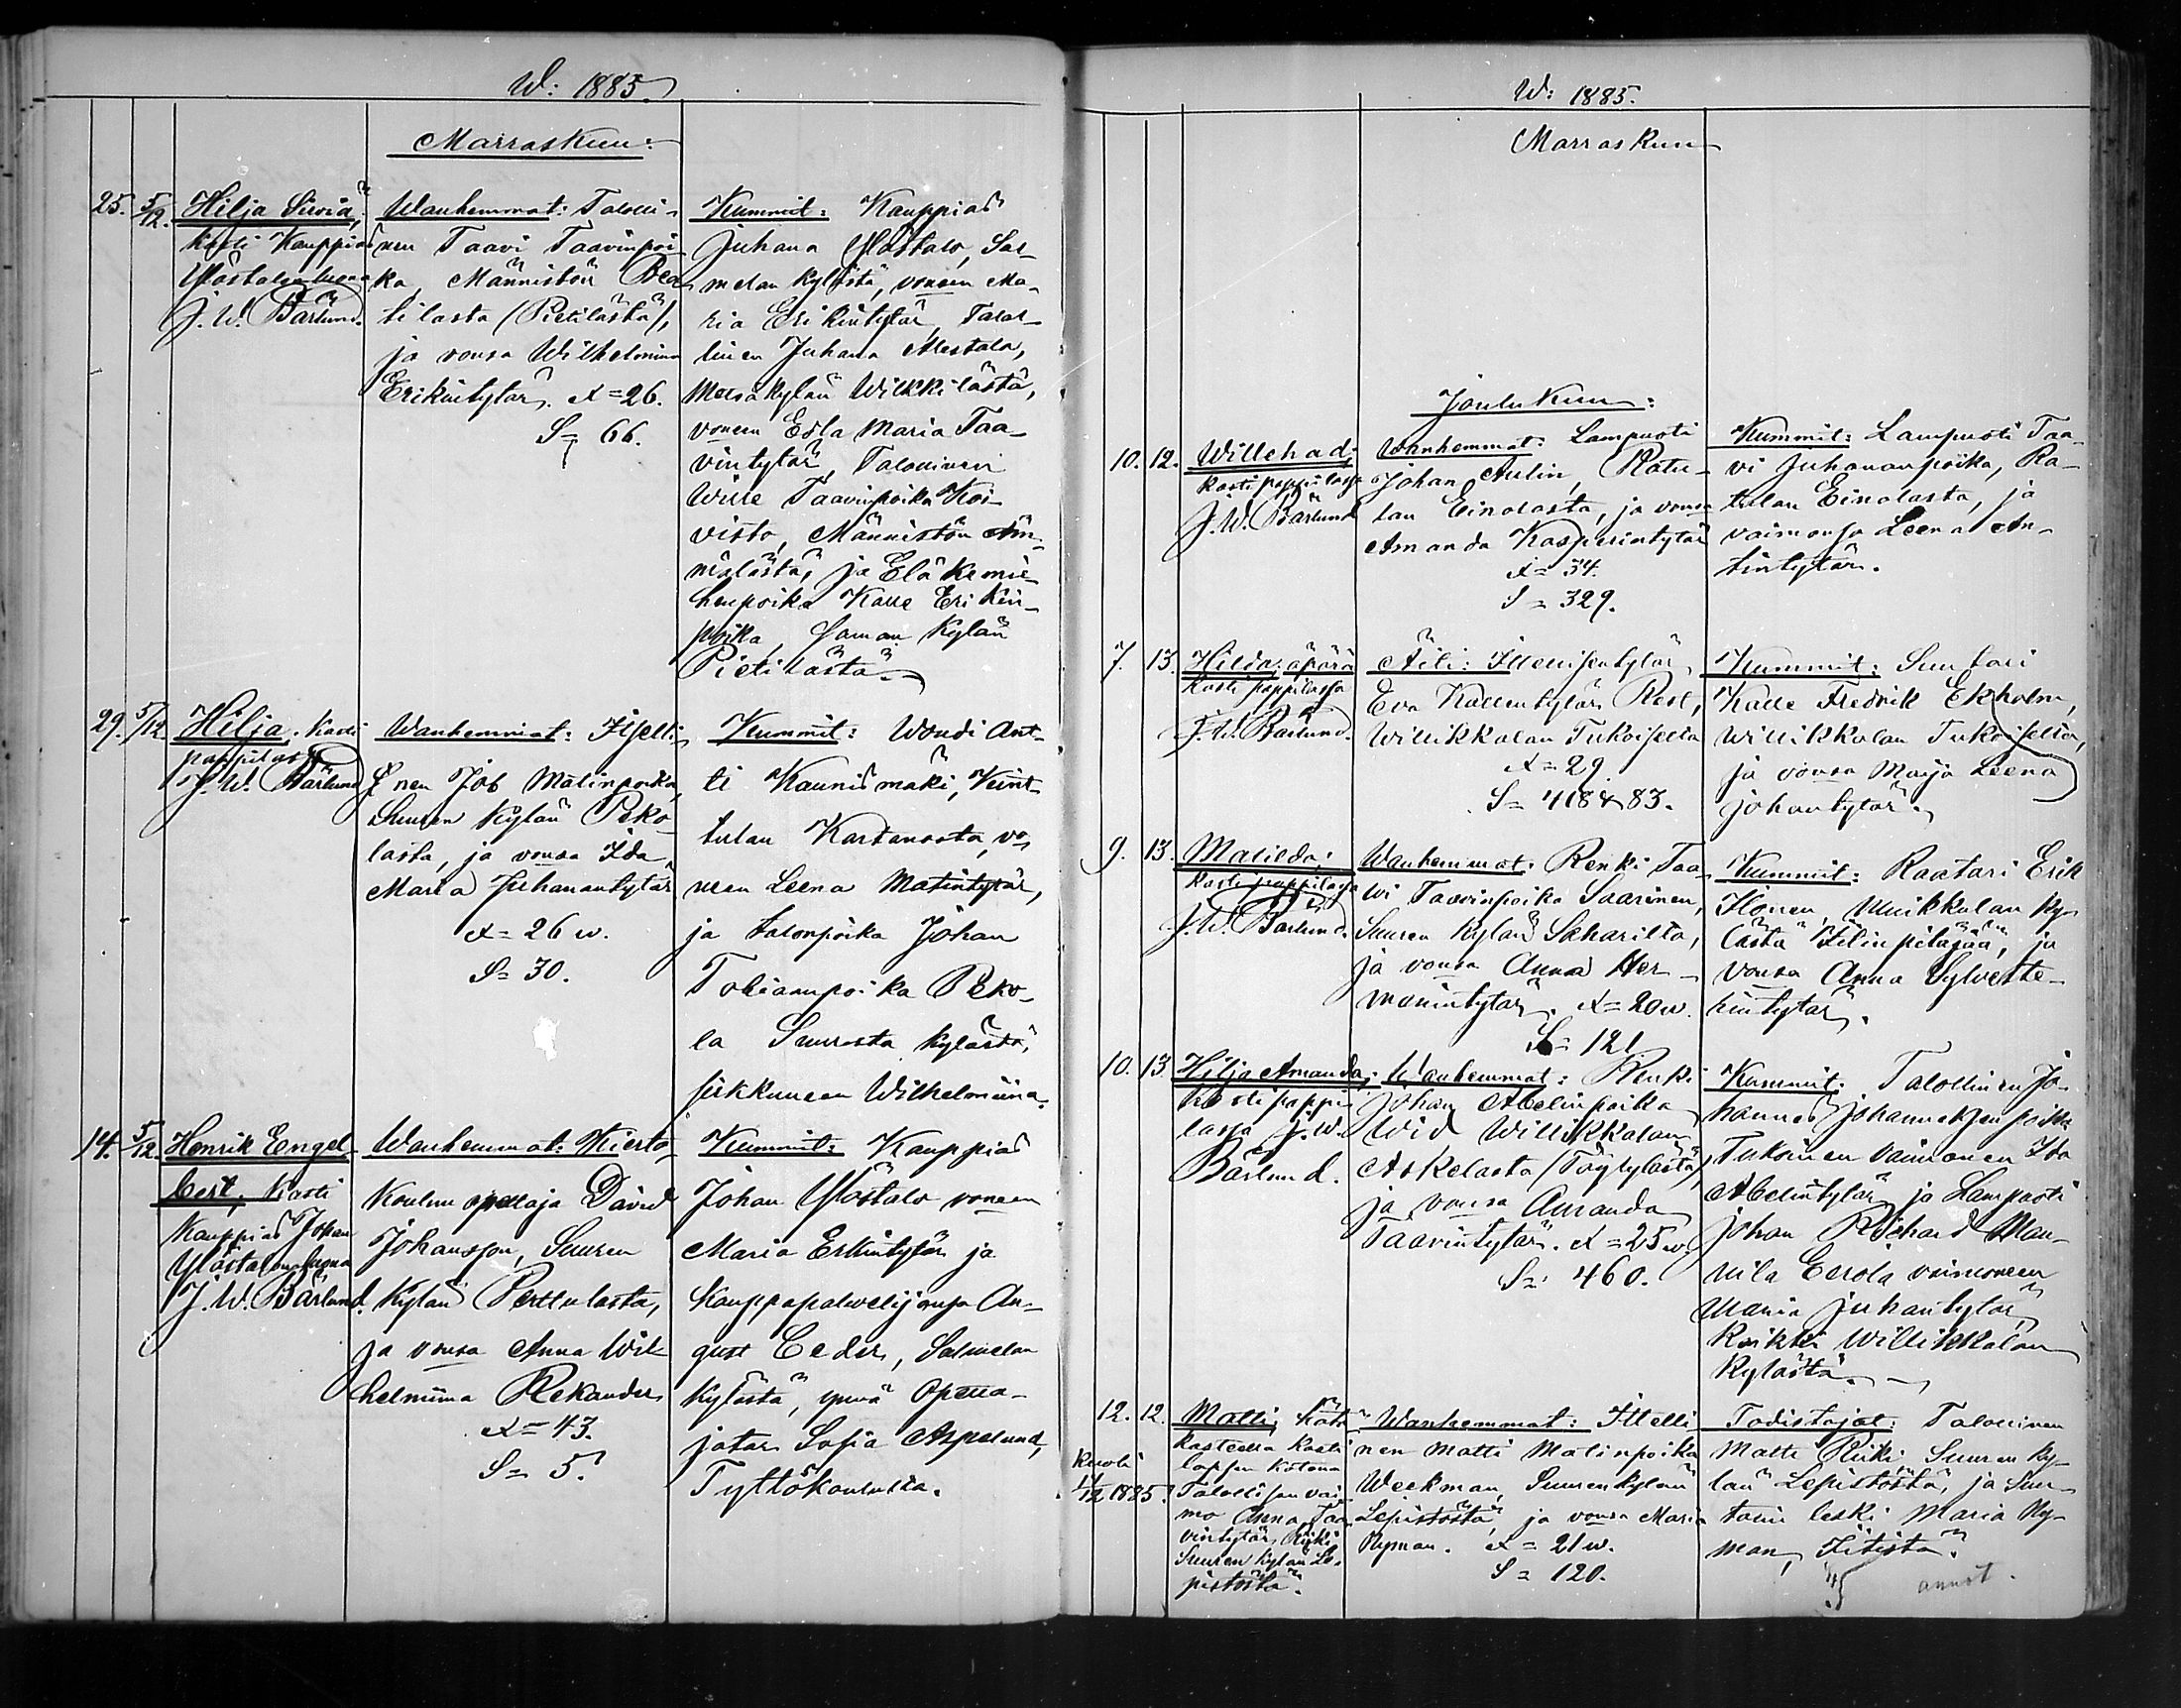 W: 1885.
Marraskuu:
25. 5/12. Hilja Siviä,
kasti Kauppias
Ylöstalon luona
J. W. Bärlund.
Wanhemmat: Talolli-
nen Taavi Taavinpoi
ka, Männistön
tilasta (Pietilästä),
ja vonsa Wilhelmina
Erikintytär. A = 26.
S = 66.
Kummit: Kauppias
Juhana Ylöstalo, Sal-
melan kylästä, voneen Ma-
ria Erikintytär, Talol-
linen Juhana Alestalo,
Metsäkylän Wilkkilästä,
voneen Edla Maria Taa-
vintytär, Talollinen
Wille Taavinpoika Koi-
visto, Männistön
ja Eläkemie-
henpoika Kalle Erikin-
poika, saman Kylän
Pietilästä.
29. 5/12 Hilja. Kasti
pappilassa
J. W. Bärlund
Wanhemmat: Itselli-
nen Job Matinpoika,
Suuren Kylän Peko-
lasta, ja vonsa Ida
Maria Juhanantytär
A = 26 w.
S = 30.
Kummit: Woudi Ant-
ti Kaunismäki,
tulan Kartanosta, vo-
neen Leena Matintytär,
ja talonpoika Johan
Tobiaanpoika Peko-
la Suuresta kylästä,
sirkkuneen Wilhelmiina.
14. 5/12 Henrik Engel-
bert, Kasti
Kauppias Johan
Ylöstalon luona
J. W. Bärlund.
Wanhemmat: Kierto-
Koulun opettaja David
Johansson, Suuren
Kylän Perttulasta,
ja vonsa Anna Wil-
helmiina Rekander
A = 43.
S = 5.
Kummit: Kauppias
Johan Ylöstalo voneen
Maria Erkintytär ja
Kauppapalvelija
gust Ceder, Salmelan
Kylästä, ynnä Opetta-
jatar Sofia Aspelund,
Tyttökoulusta.
W: 1885.
Marraskuu
Joulukuu:
10. 12. Willehad;
kasti pappilassa
J. W. Bärlund
Wanhemmat: Lampuoti
Johan Aulin, Ratu-
lan Einolasta, ja vonsa
Amanda Kasperintytär
A = 34.
S = 329.
Kummit: Lampuoti Taa-
vi Juhananpoika, Ra-
tulan Einolasta, ja
vaimonsa Leena An-
tintytär.
7. 13. Hilda; äpärä
Kasti pappilassa
J. W. Bärlund.
Äiti: Itsellisentytär
Eva Kallentytär Rest,
Willikkalan Tukoiselta
A = 29.
S = 418 & 83.
Kummit: Suutari
Kalle Fredrik Ekholm,
Willikkalan Tukoiselta,
ja vonsa Maija Leena
Johantytär.
9. 13. Matilda:
Kasti pappilassa
J. W. Bärlund.
Wanhemmat: Renki Taa-
wi Taavinpoika Saarinen,
Suuren Kylän Saharilta,
ja vonsa Anna Her-
manintytär. A = 20 w.
S = 121
Kummit: Raatari Erik
Ilonen, Muikkulan ky-
lästä Iitin pitäjää, ja
vonsa Anna Sylveste-
rintytär.
10. 13 Hilja Amanda;
Kasti pappi-
lassa J. W.
Bärlund.
Wanhemmat: Renki
Johan Abelinpoika
Wid Willikkalan
Askelasta (Töytylästä),
ja vonsa Amanda
Taavintytär. A = 25 w.
S = 460.
Kummit: Talollinen Jo-
hannes Johanneksenpoika
Tukoinen vaimoneen Ida
Abelintytär ja Lampuoti
Johan Richard Man-
nila Eerola vaimoneen
Maria Juhantytär,
Kaikki Willikkalan
Kylästä.
12. 12. Matti; hätä
kasteella Kasti
lapsen kotona
Talollisen vai-
mo Anna Taa-
vintytär, Riiki
Suuren Kylän Le-
pistöstä.
Kuoli
12 1885.
Wanhemmat: Itselli
nen Matti Matinpoika
Weckman, Suuren kylän
Lepistöstä, ja vonsa Maria
Nyman. A = 21 w.
S = 120.
Todistajat: Talollinen
Matti Riiki, Suuren Ky-
län Lepistöstä, ja Suu-
tarin leski Maria Ny-
man, Iitistä.
annot.